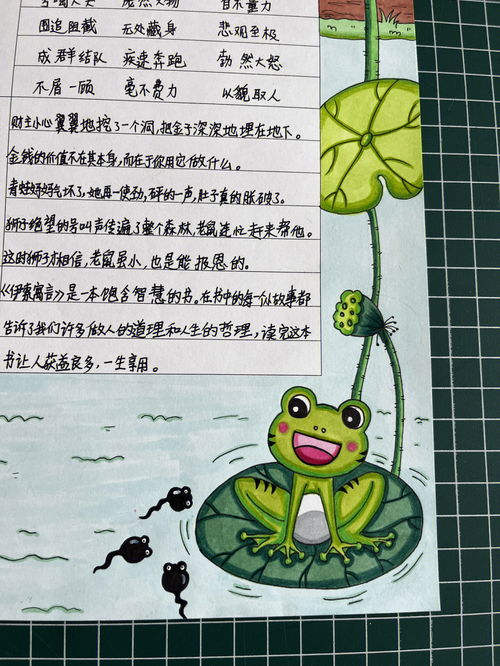 庞然大物 自不量力
围追阻截 无处藏身 悲观至极
成群结队 疾速奔跑 勃然大怒
不屑一顾 毫不费力 以貌取人
财主小心翼翼地挖了一个洞,把金子深深地埋在地下。
金钱的价值不在其本身,而在于你用它做什么。
青蛙好好气坏了,她再一使劲,砰的一声,肚子真的胀破了。
狮子绝望的号叫声传遍了整个森林,老鼠连忙赶来帮他。
这时狮子才相信,老鼠虽小,也是能报恩的。
《伊索寓言》是一本饱含智慧的书。在书中的每一个故事都
告诉了我们许多做人的道理和人生的哲理,读完这本
书让人获益良多,一生享用。